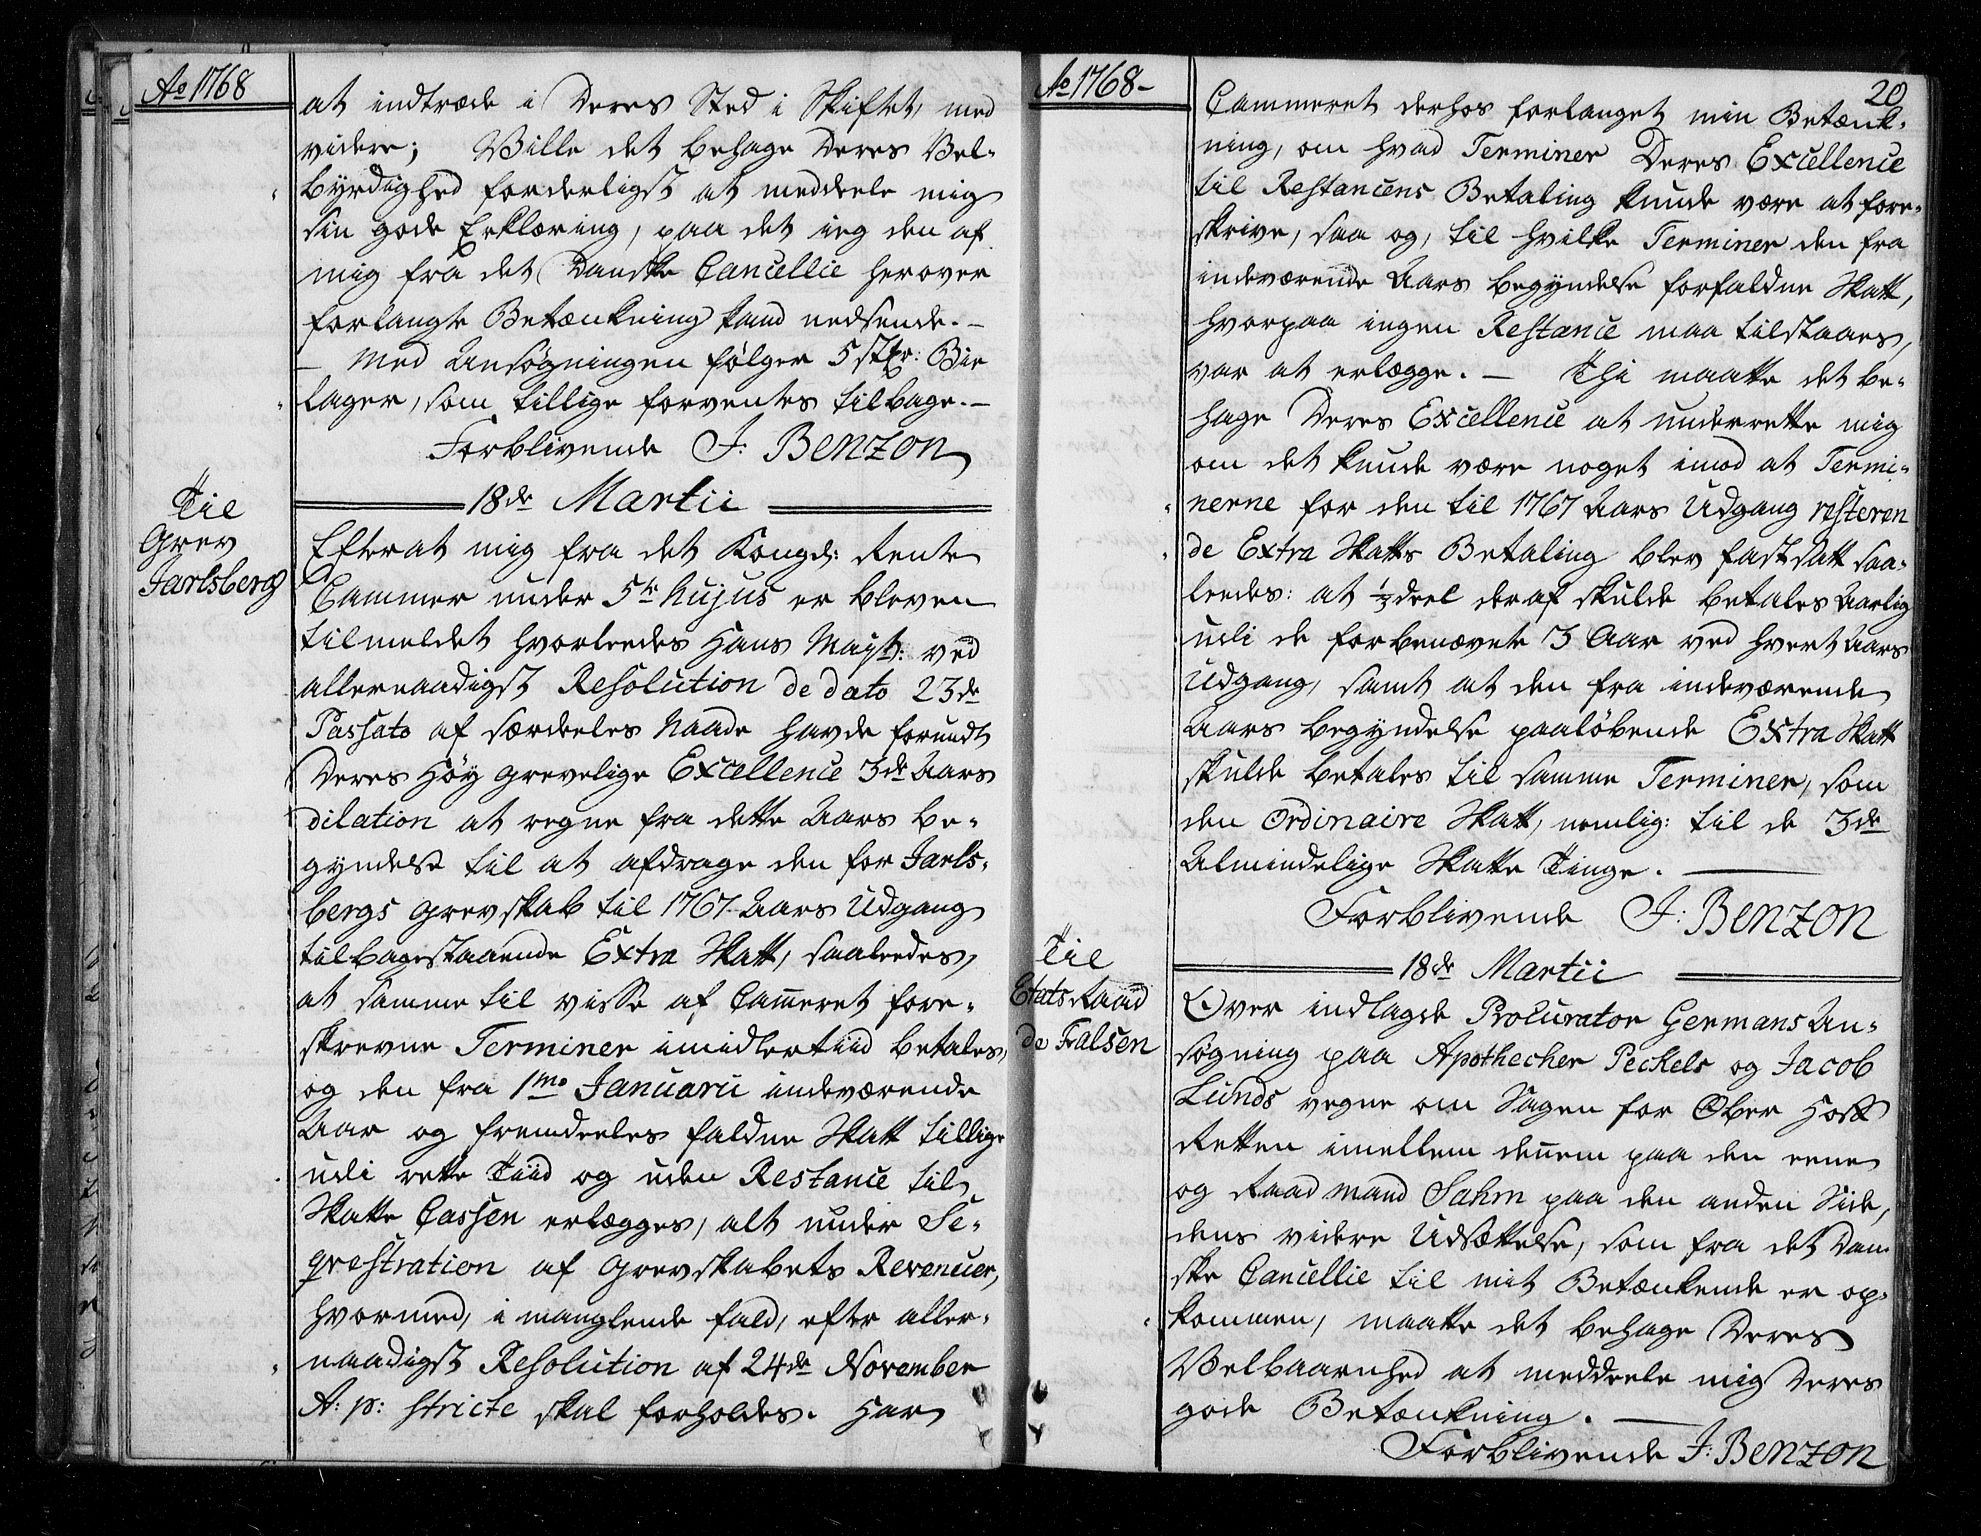 Ao 1768
at indtræde i Deres Sted i Skiftet, med
videre; Ville det behage Deres Vel-
byrdighed forderligst at meddeele mig
sin gode Erklæring, paa det ieg den af
mig fra det Danske Cancellie herover
forlangte Betænkning kand nedsende. –
– Med Ansøgningen følger 5 stkr: Bie
lager, som tillige forventes tilbage. –
Forblivende J: Benzon
18de Martii
Til
Grev
Jarlsberg
Efterat mig fra det Kongel: Rente
Cammer under 5te hujus er bleven
tilmeldet hvorleedes Hans Mayt: ved
allernaadigst Resolution de dato 23de
Passato af særdeeles Naade havde forundt
Deres Høy Grevelige Excellence 3de Aars
dilation at regne fra dette Aars Be-
gyndelse til at afdrage den for Jarls-
bergs Grevskab til 1767 Aars Udgang
tilbagestaaende Extra Skatt, saaleedes,
at samme til visse af Cam̄eret fore-
skrevne Terminer imidlertiid betales,
og den fra 1mo Januarii indeværende
Aar og fremdeeles faldne Skatt tillige
udi rette Tiid og uden Restance til
Skatte Cassen erlægges, alt under Se-
qvestration af Grevskabets Revenuer,
hvormed, i manglende fald, efter aller-
naadigst Resolution af 24de November
A: p: stricte skal forholdes. Har
Ao 1768 –
20
Cammeret derhos forlanget min Betænk-
ning, om hvad Terminer Deres Excellence
til Restancens Betaling kunde være at fore-
skrive, saa og, til hvilke Terminer den fra
indeværende Aars begyndelse forfaldne Skatt,
hvorpaa ingen Restance maa tilstaaes,
var at erlægge. – Thi maatte det be-
hage Deres Excellence at underrette mig
om det kunde være noget imod at Termi-
nerne for den til 1767 Aars Udgang resteren
de Extra Skatts Betaling blev fastsatt saa-
leedes: at ⅓ deel deraf skulde betales Aarlig
udi de forbenævnte 3 Aar ved hvert Aars
Udgang, samt at den fra indeværende
Aars begyndelse paaløbende Extra Skatt
skulde betales til samme Terminer, som
den Ordinaire Skatt, nemlig: til de 3de
Almindelige Skatte Tinge. –
Forblivende J: Benzon
18de Martii
Til
Etats Raad
de Falsen
Over indlagde Procurator Germans An-
søgning paa Apothecher Peckels og Jacob
Lunds vegne om Sagen for Ober Hoff
Retten imellem den̄em paa den eene
og Raadmand Sahm paa den anden Side,
dens videre Udsættelse, som fra det Dan
ske Cancellie til mit Betænkende er op-
kommen, maatte det behage Deres
Velbaarnhed at meddeele mig Deres
gode Betænkning. –
Forblivende J: Benzon